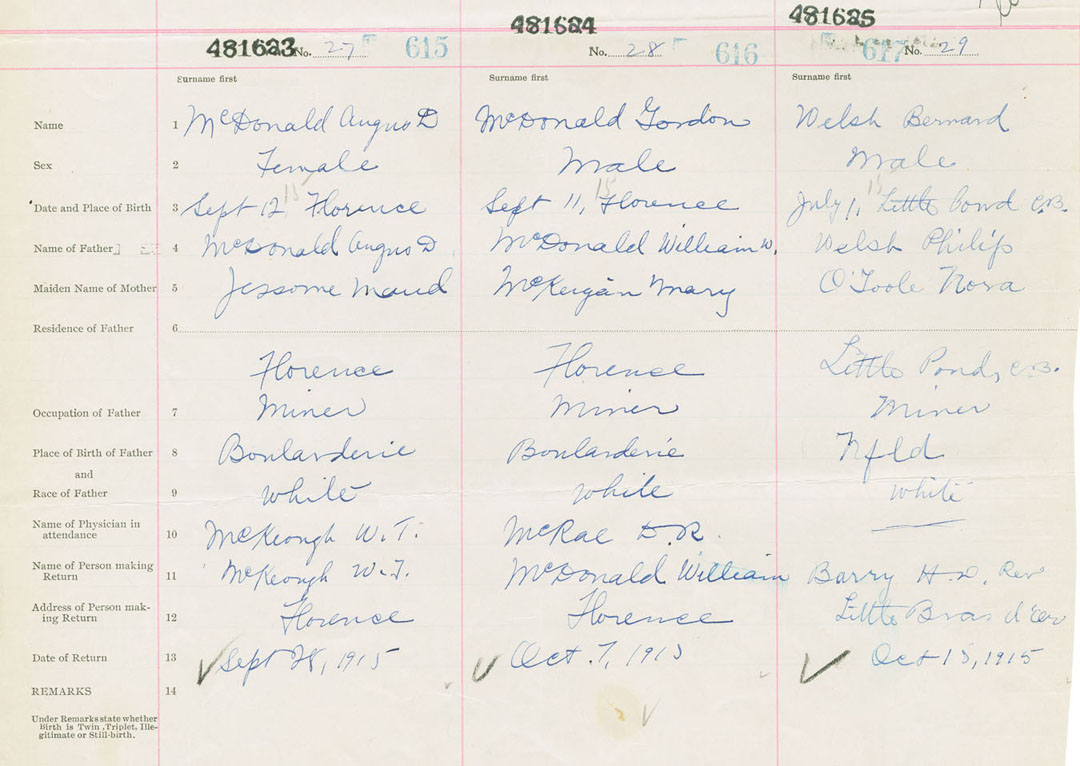 481623 481624 481625
No. 27 615 No. 28 616 617 No. 29
Surname first Surname first Surname first
Name 1 McDonald Angus D McDonald Gordon Welsh Bernard
Sex 2 Female Male Male
15 15 15
Date and Place of Birth 3 Sept 12 Florence Sept 11, Florence July 1, Little Pond C.B.
Name of Father 4 McDonald Angus D McDonald William W. Welsh Philip
Maiden Name of Mother 5 Jessome Maud McKeigan Mary O'Toole Nora
Residence of Father 6
Florence Florence Little Pond, C.B.
Occupation of Father 7 Miner Miner Miner
Place of Birth of Father 8 Boularderie Boularderie Nfld
and
Race of Father 9 White White White
Name of Physician in
attendance 10 McKeough W.T. McRae D.R.
Name of Person making
Return 11 McKeough W.T. McDonald William Barry H.D. Rev
Address of Person mak-
ing Return 12 Florence Florence Little Bras d'Or
Date of Return 13 Sept 28, 1915 Oct. 7, 1915 Oct 18, 1915
REMARKS 14
Under Remarks state whether
Birth is Twin, Triplet, Ille-
gitimate or Still-birth.